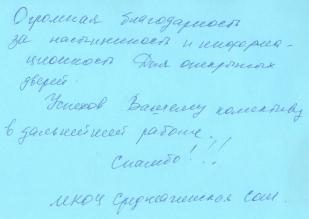 Огромная благодарность
за насыщенность и информа-
ционность Дня открытых
дверей.
Успехов Вашему коллективу
в дальнейшей работе.
Спасибо!!!
МКОУ сош.